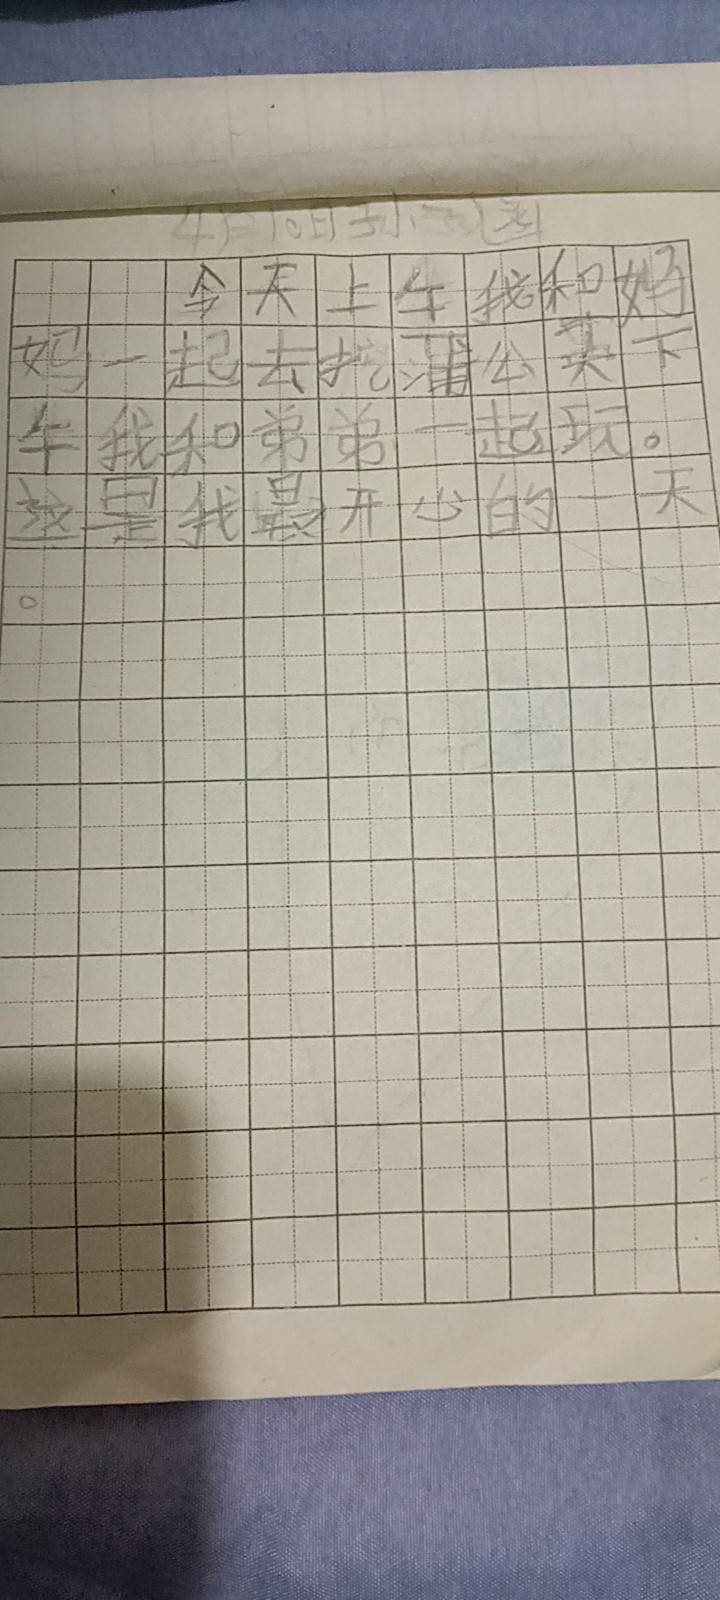 4月10日
今天上午我和妈
妈一起去挖蒲公英下
午我和弟弟一起玩。
这是我最开心的一天
。